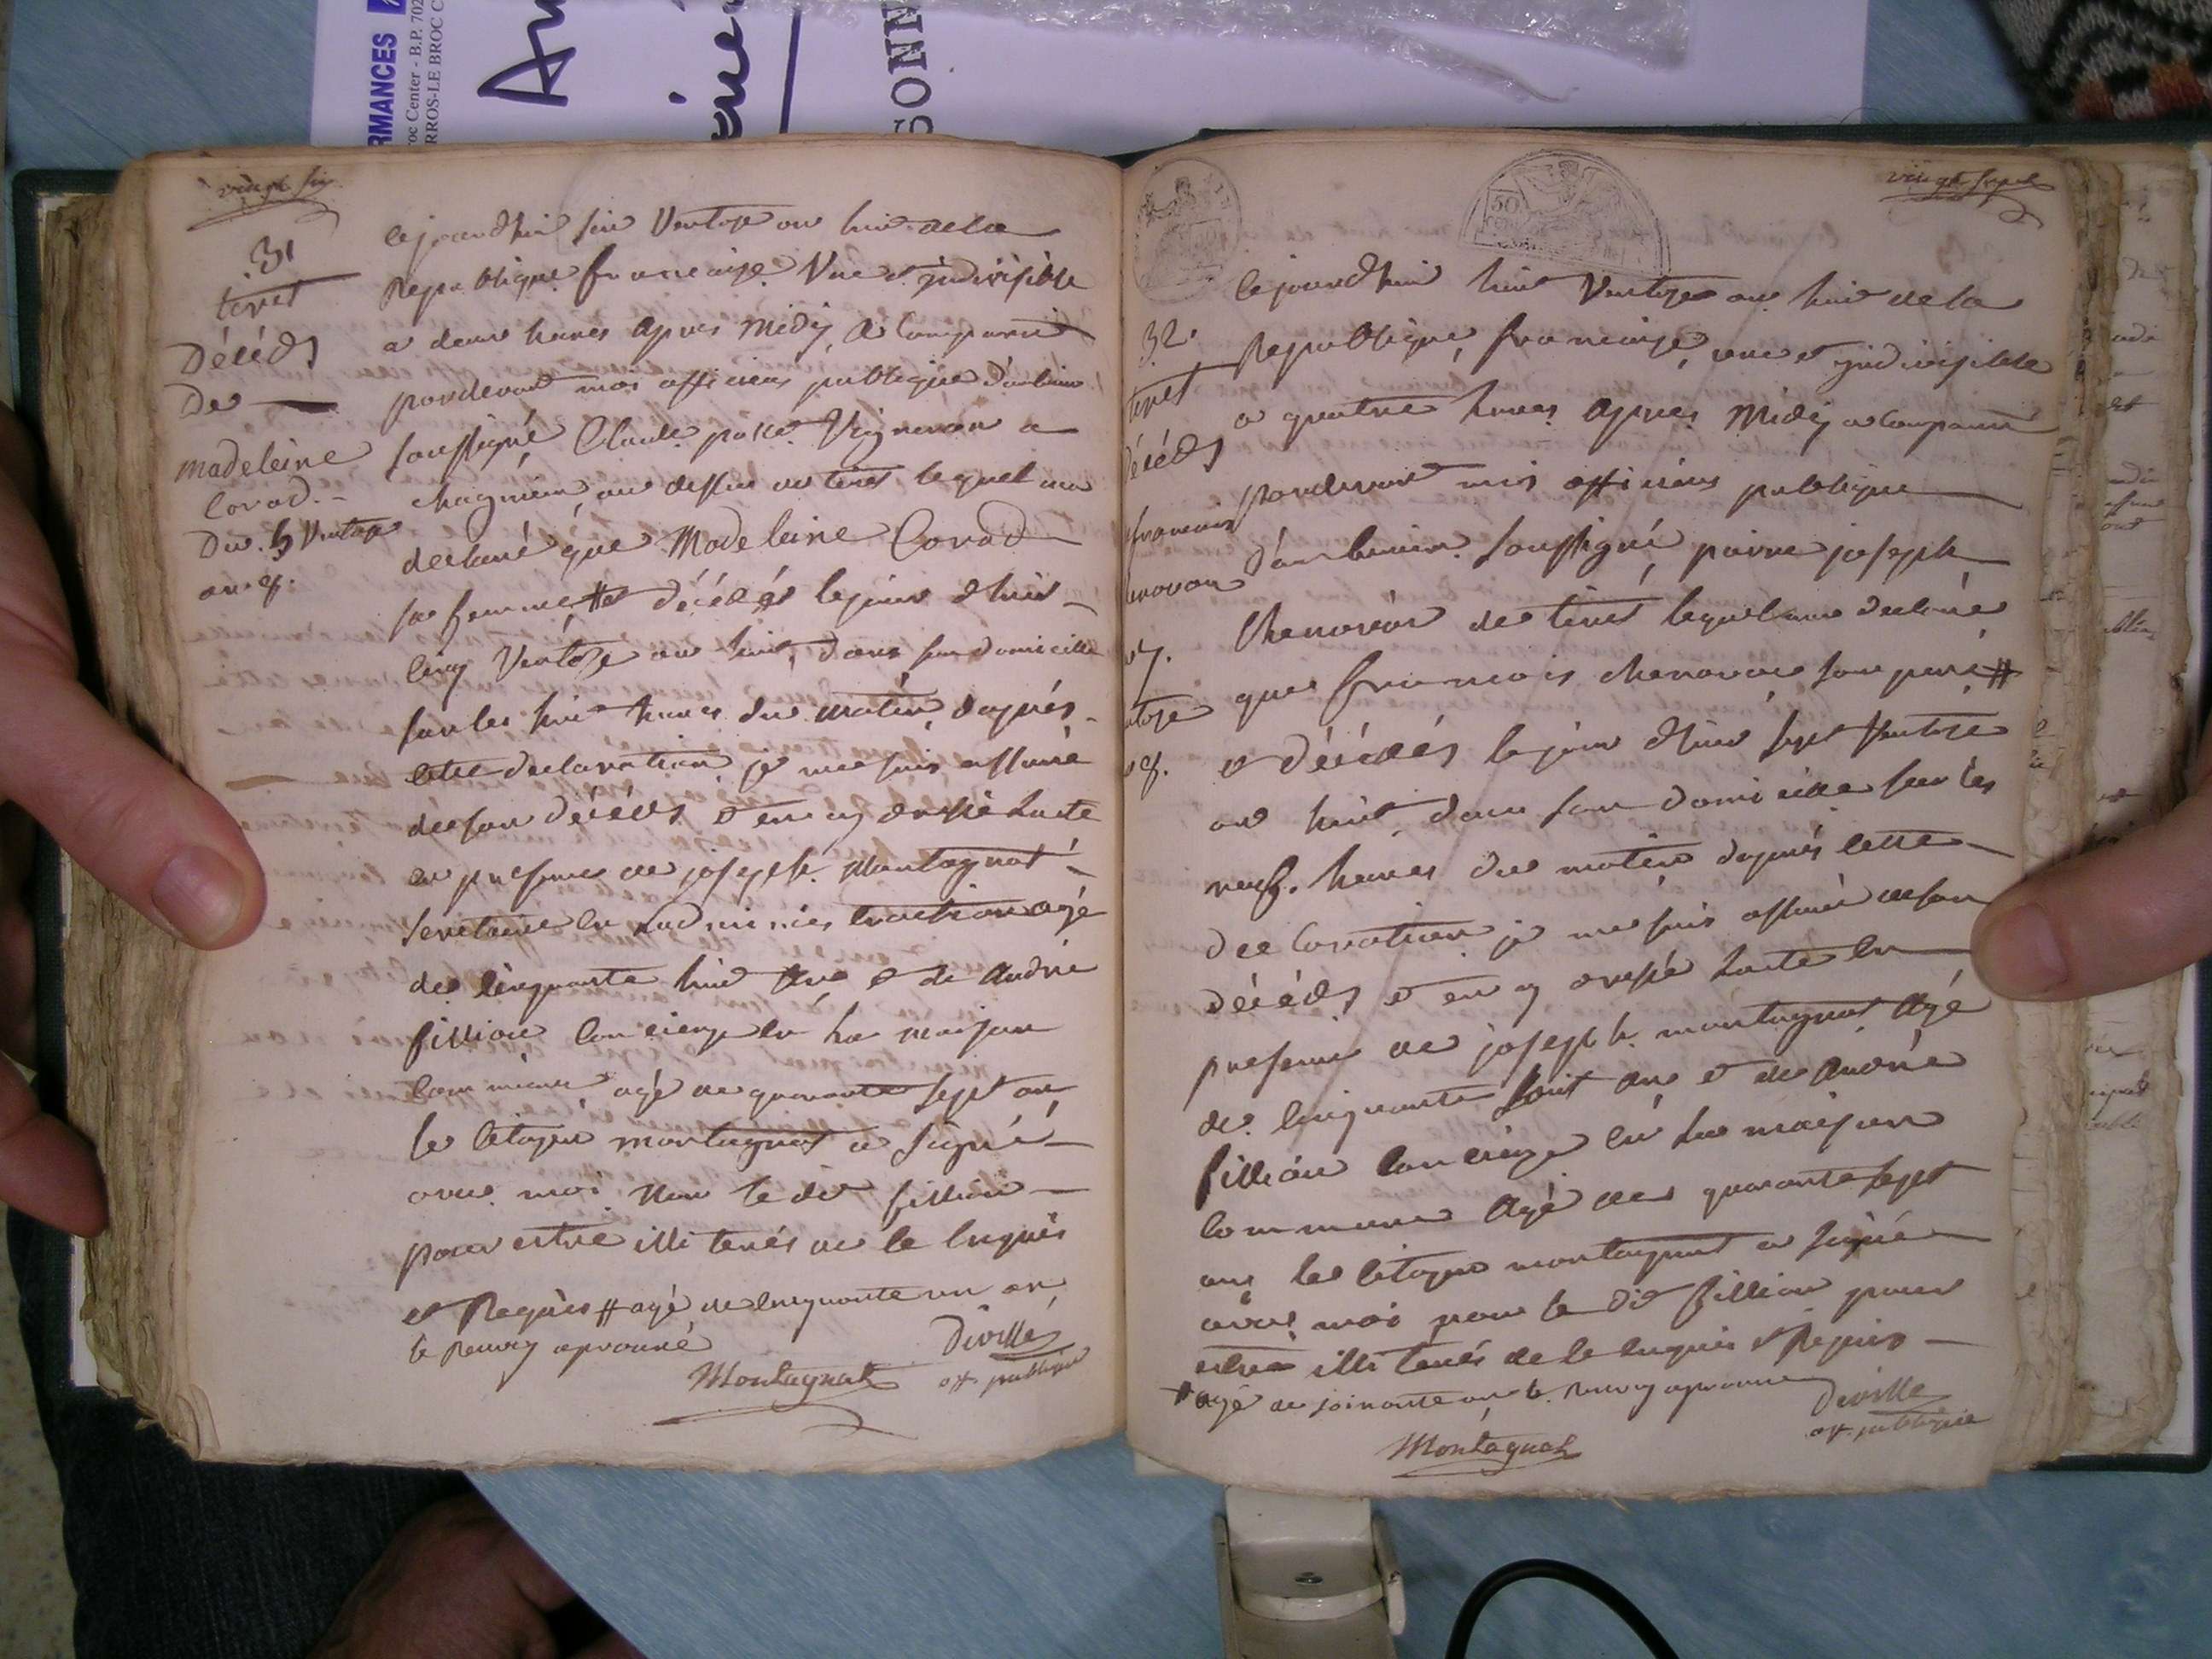 RMANCES
oc Center - B.P. 702
RROS-LE BROC C
An
SONN
vingt six
31
tiret
Décéds
De
madeleine
Corad.
Du 5 Ventose
an 8.
cejourdhuit six Ventose an huit de la
Republique francaise Vne et jndivisible
a deux heures apres Midy, a Comparut
pardevant moi officiers publique d'ambierr
soussigné Claude Vigneron a
chagnieu, au dessus de tiret lequel ma
declaré que Madeleine Corad
sa femme # et décédés le jour d'huit
cinq Ventose an huit, dans son domicille
sur les huit heures du matin, d'aprés
cette declaration je me suis assuré
de son décéds et en ay dressé lacte
en presence de joseph Montagnat
secretaire en Ladminiestraction agé
de cinquante huit Ans et de André
fillion Concierge en La maison
Commune, agé de quarante sept ans
le citoyen montagnat a signé
avec moi Non le dit fillion
pour estre illiterés de le enquis
et Requis # agé de cinquante un an,
le renvoy aprouvé
Diville
off. publique
Montagnat
vingt sept
50
32.
tiret
décéds
francois
enovar
7.
ntose
8.
cejourdhuit huit Ventose an huit de la
Republique francaise, une et jndivisible
a quattre heures apres Midy a Comparut
pardevant moi officiers publique
d'ambierr soussigné, pierre joseph
Chenovar de tiret lequel ma declaré
que francois chenovar son pere #
et décédés le jour d'hier sept Ventose
an huit, dans son domicille sur les
neuf heures du matin d'aprés cette
declaration je me suis assuré de son
décéds et en ay dressé Lacte en
presence de joseph montagnat Agé
de cinquante huit ans et de André
fillion Concierge en La maison
Commune Agé de quarante sept
ans le citoyen montagnat a signé
avec moi non le dit fillion pour
estre illiterés de le enquis et Requis
# agé de soixante an le renvoy aprouvé
Diville
off. publique
Montagnat